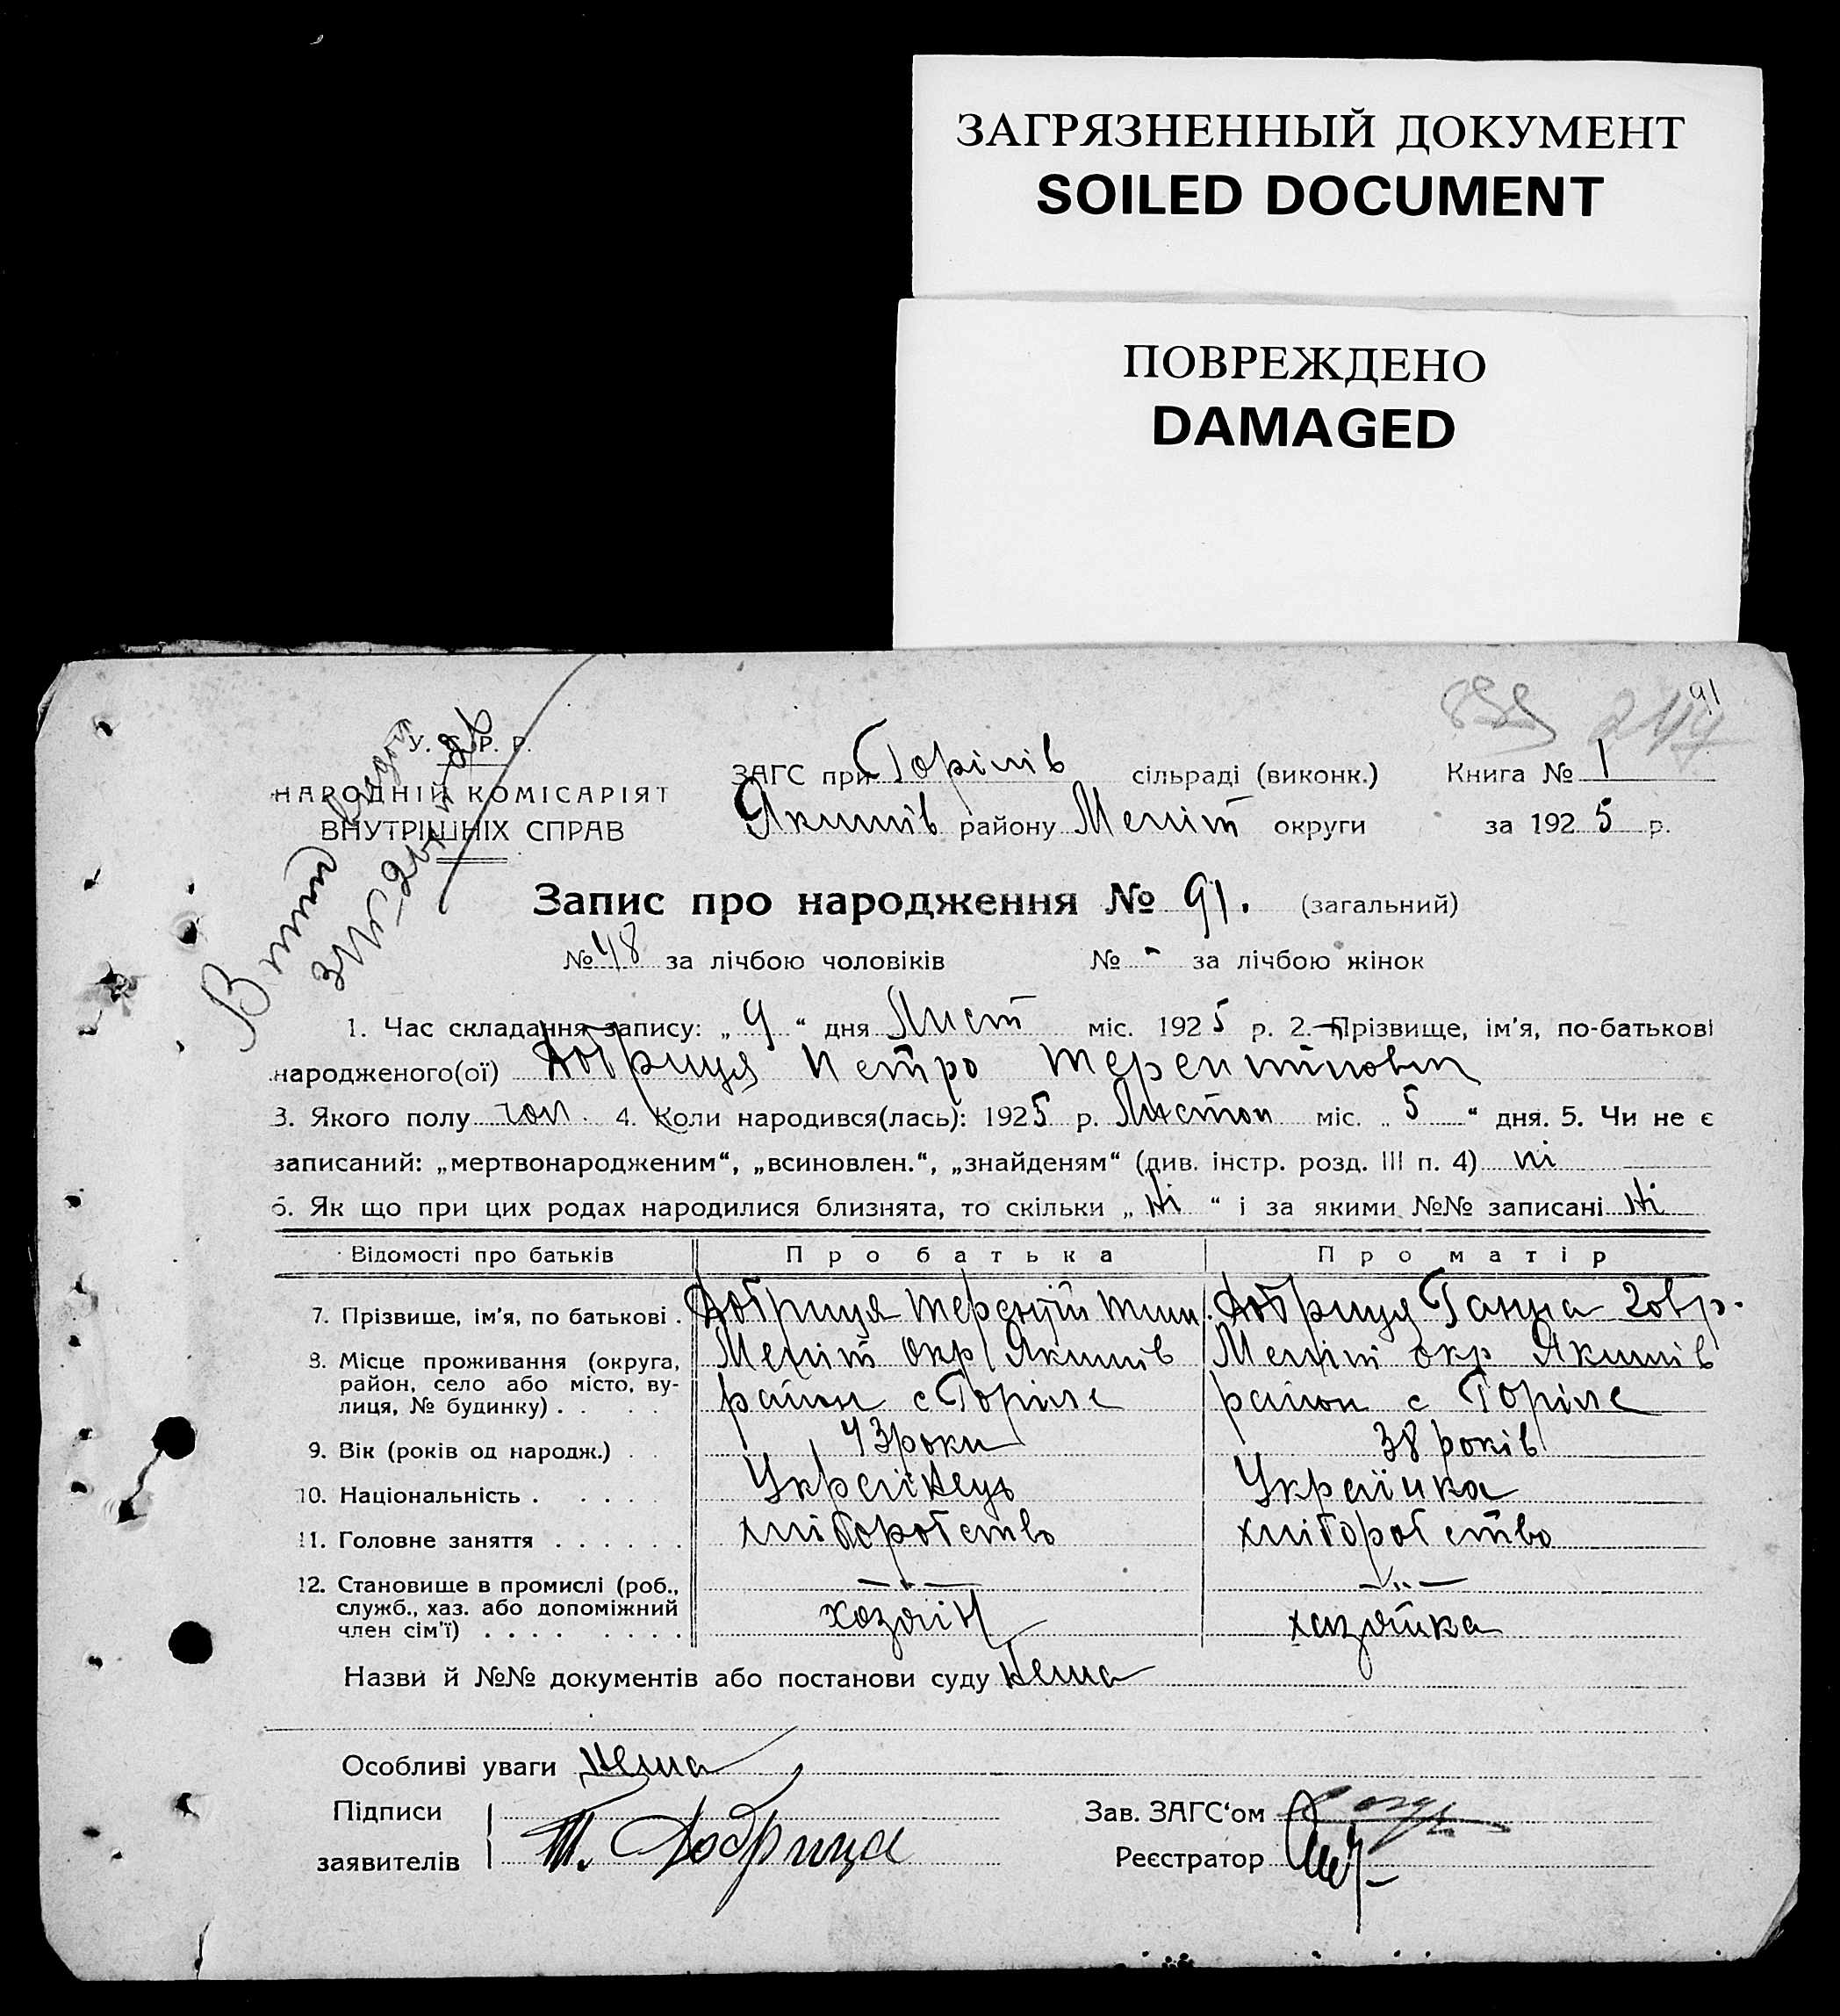 ЗАГРЯЗНЕННЫЙ ДОКУМЕНТ
SOILED DOCUMENT
ПОВРЕЖДЕНО
DAMAGED
91
У. С. Р. Р.
НАРОДНІЙ КОМІСАРІЯТ
ВНУТРІШНІХ СПРАВ
ЗАГС при Горілів сільраді (виконк.) Книга № 1
Якимів району Меліт округи за 1925 р.
Запис про народження № 91. (загальний)
№ 48 за лічбою чоловіків № - за лічбою жінок
1. Час складання запису: „ 9 “ дня Лист міс. 1925 р. 2. Прізвище, ім'я, по-батькові
народженого(ої) Добриця Петро Терентійович
3. Якого полу чол. 4. Коли народився(лась): 1925 р. Листоп міс. „ 5 “ дня. 5. Чи не є
записаний: „мертвонародженим“, „всиновлен.“, „знайденям“ (див. інстр. розд. III п. 4) ні
6. Як що при цих родах народилися близнята, то скільки „ Ні “ і за якими №№ записані Ні
Відомості про батьків Про батька Про матір
7. Прізвище, ім'я, по батькові . Добриця Терентій Тим. Добриця Ганна Говр.
8. Місце проживання (округа, Меліт окр Якимів Меліт окр Якимів
район, село або місто, ву-
лиця, № будинку) . . район с Горіле район с Горіле
9. Вік (років од народж.) . . 43 роки 38 років
10. Національність . . . . . Українець Українка
11. Головне заняття . . . . . . хліборобство хліборобство
12. Становище в промислі (роб., — " — — " —
служб., хаз. або допоміжний хозяїн хазяйка
член сім'ї) . . . . . . . .
Назви й №№ документів або постанови суду Нема
Особливі уваги нема
Підписи Зав. ЗАГС'ом
заявителів Т. Добриця Реєстратор